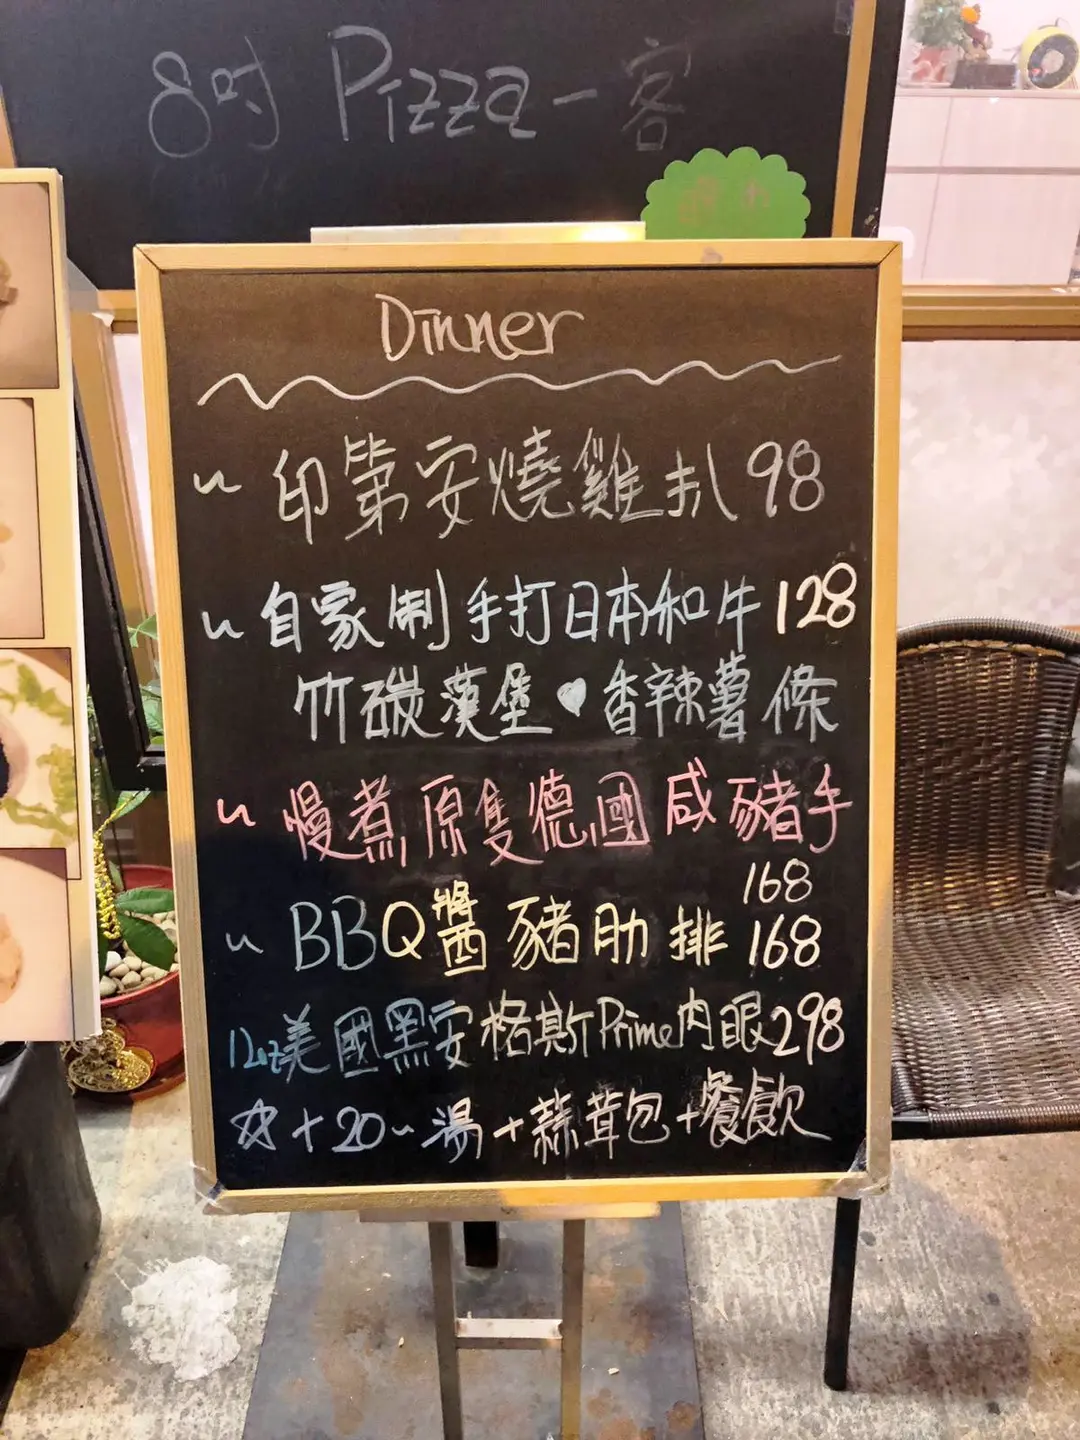 8吋 Pizza一客
Dinner
~ 印第安燒雞扒 98
~ 自家制手打日本和牛 128
竹碳漢堡♥香辣薯條
~ 慢煮原隻德國咸豬手
168
~ BBQ醬豬肋排 168
12oz美國黑安格斯Prime肉眼298
☆+20~湯+蒜茸包+餐飲